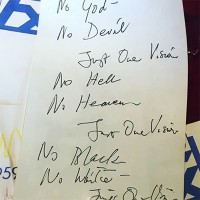 No God –
No Devil
Just One Vision
No Hell
No Heaven
Just One Vision
No Black
No White –
Just One Vision
059